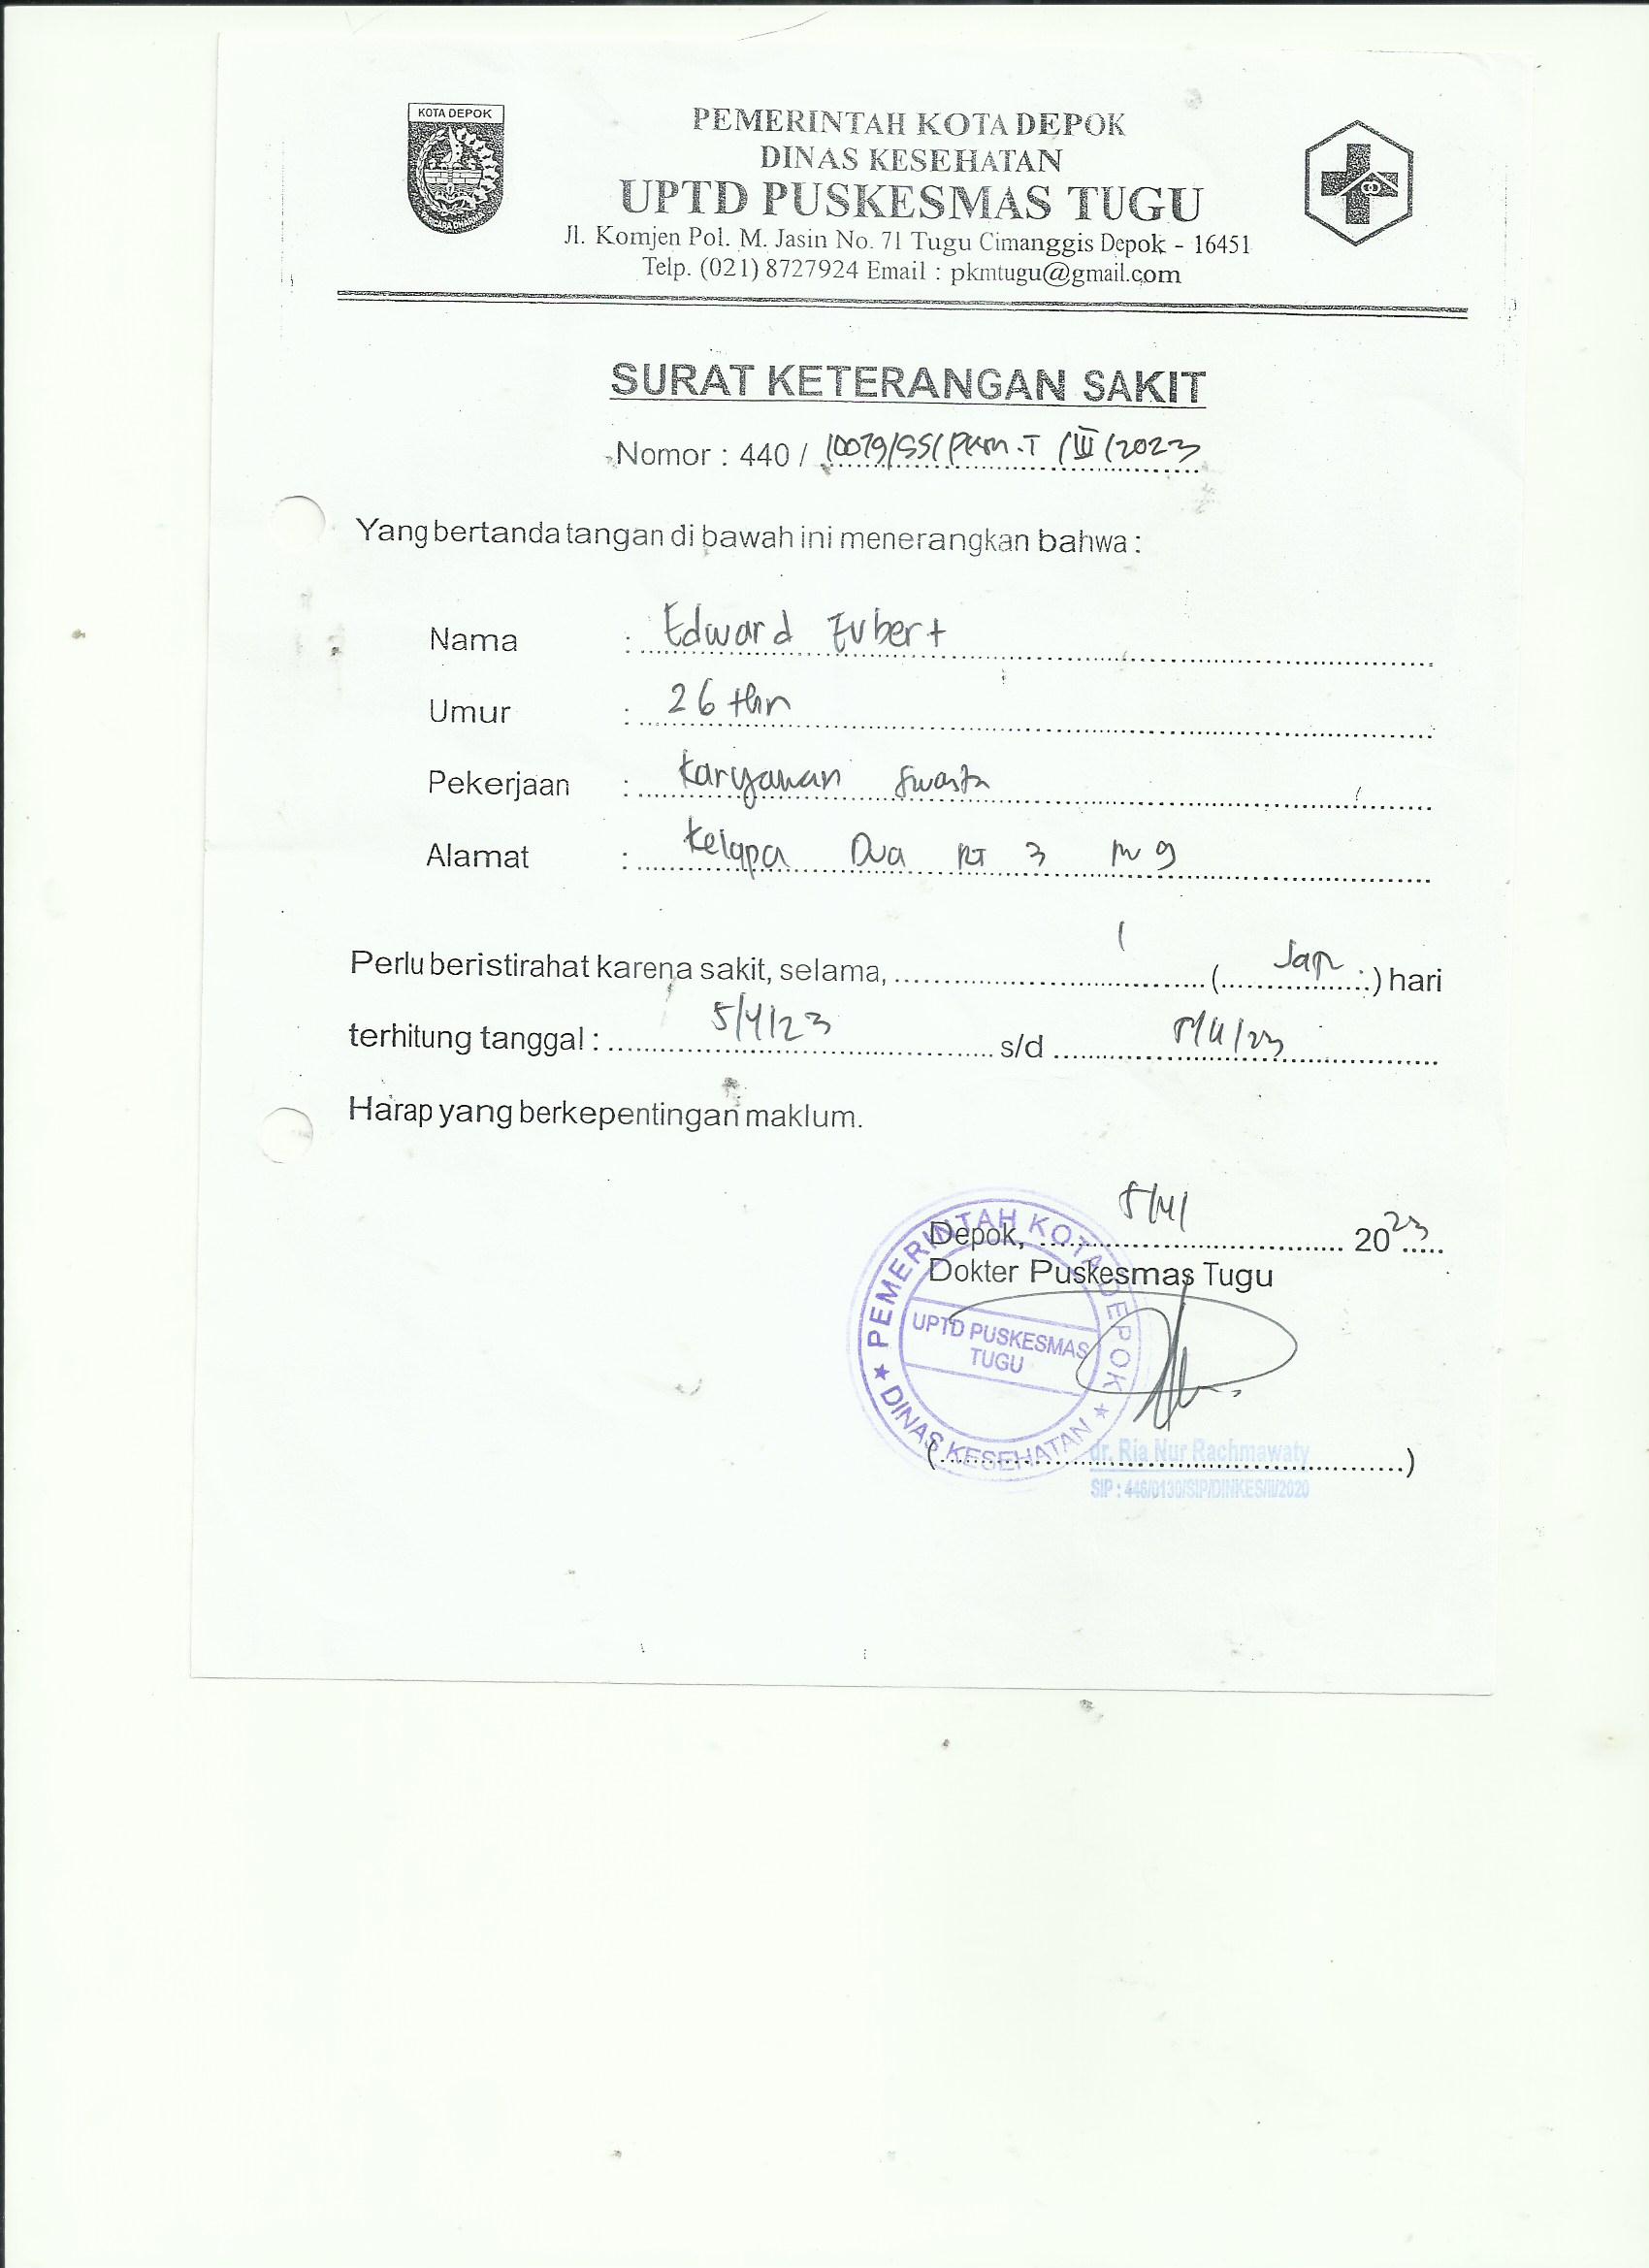 KOTA DEPOK
PEMERINTAH KOTA DEPOK
DINAS KESEHATAN
UPTD PUSKESMAS TUGU
Jl. Komjen Pol. M. Jasin No. 71 Tugu Cimanggis Depok - 16451
Telp. (021) 8727924 Email : pkmtugu@gmail.com
SURAT KETERANGAN SAKIT
Nomor : 440 / 10079/SS/PKM.T/III/2023
Yang bertanda tangan di bawah ini menerangkan bahwa :
Nama : Edward Eubert
Umur : 26 thn
Pekerjaan : Karyawan Swasta
Alamat : Kelapa Dua RT 3 RW 9
Perlu beristirahat karena sakit, selama, 1 (satu) hari
terhitung tanggal : 5/4/23 s/d 5/4/23
Harap yang berkepentingan maklum.
Depok, 5/4/ 2023
Dokter Puskesmas Tugu
PEMERINTAH KOTA DEPOK
UPTD PUSKESMAS
TUGU
★ DINAS KESEHATAN ★
(dr. Ria Nur Rachmawaty)
SIP : 446/0130/SIP/DINKES/II/2020